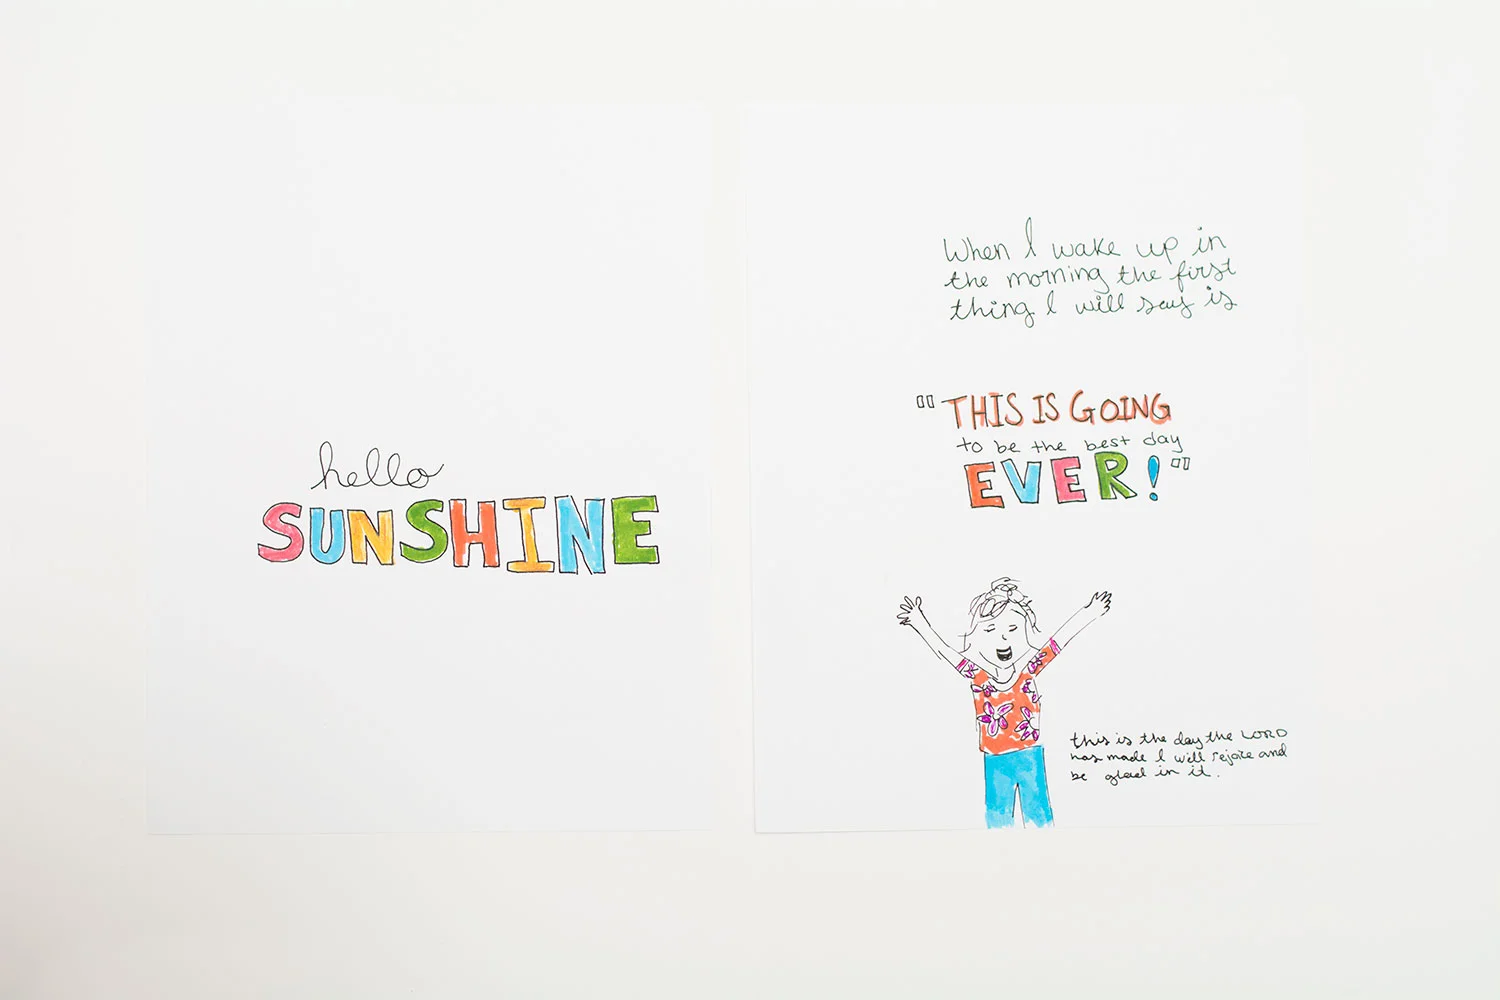 hello
SUNSHINE
When I wake up in
the morning the first
thing I will say is
"THIS IS GOING
to be the best day
EVER!"
this is the day the LORD
has made I will rejoice and
be glad in it.